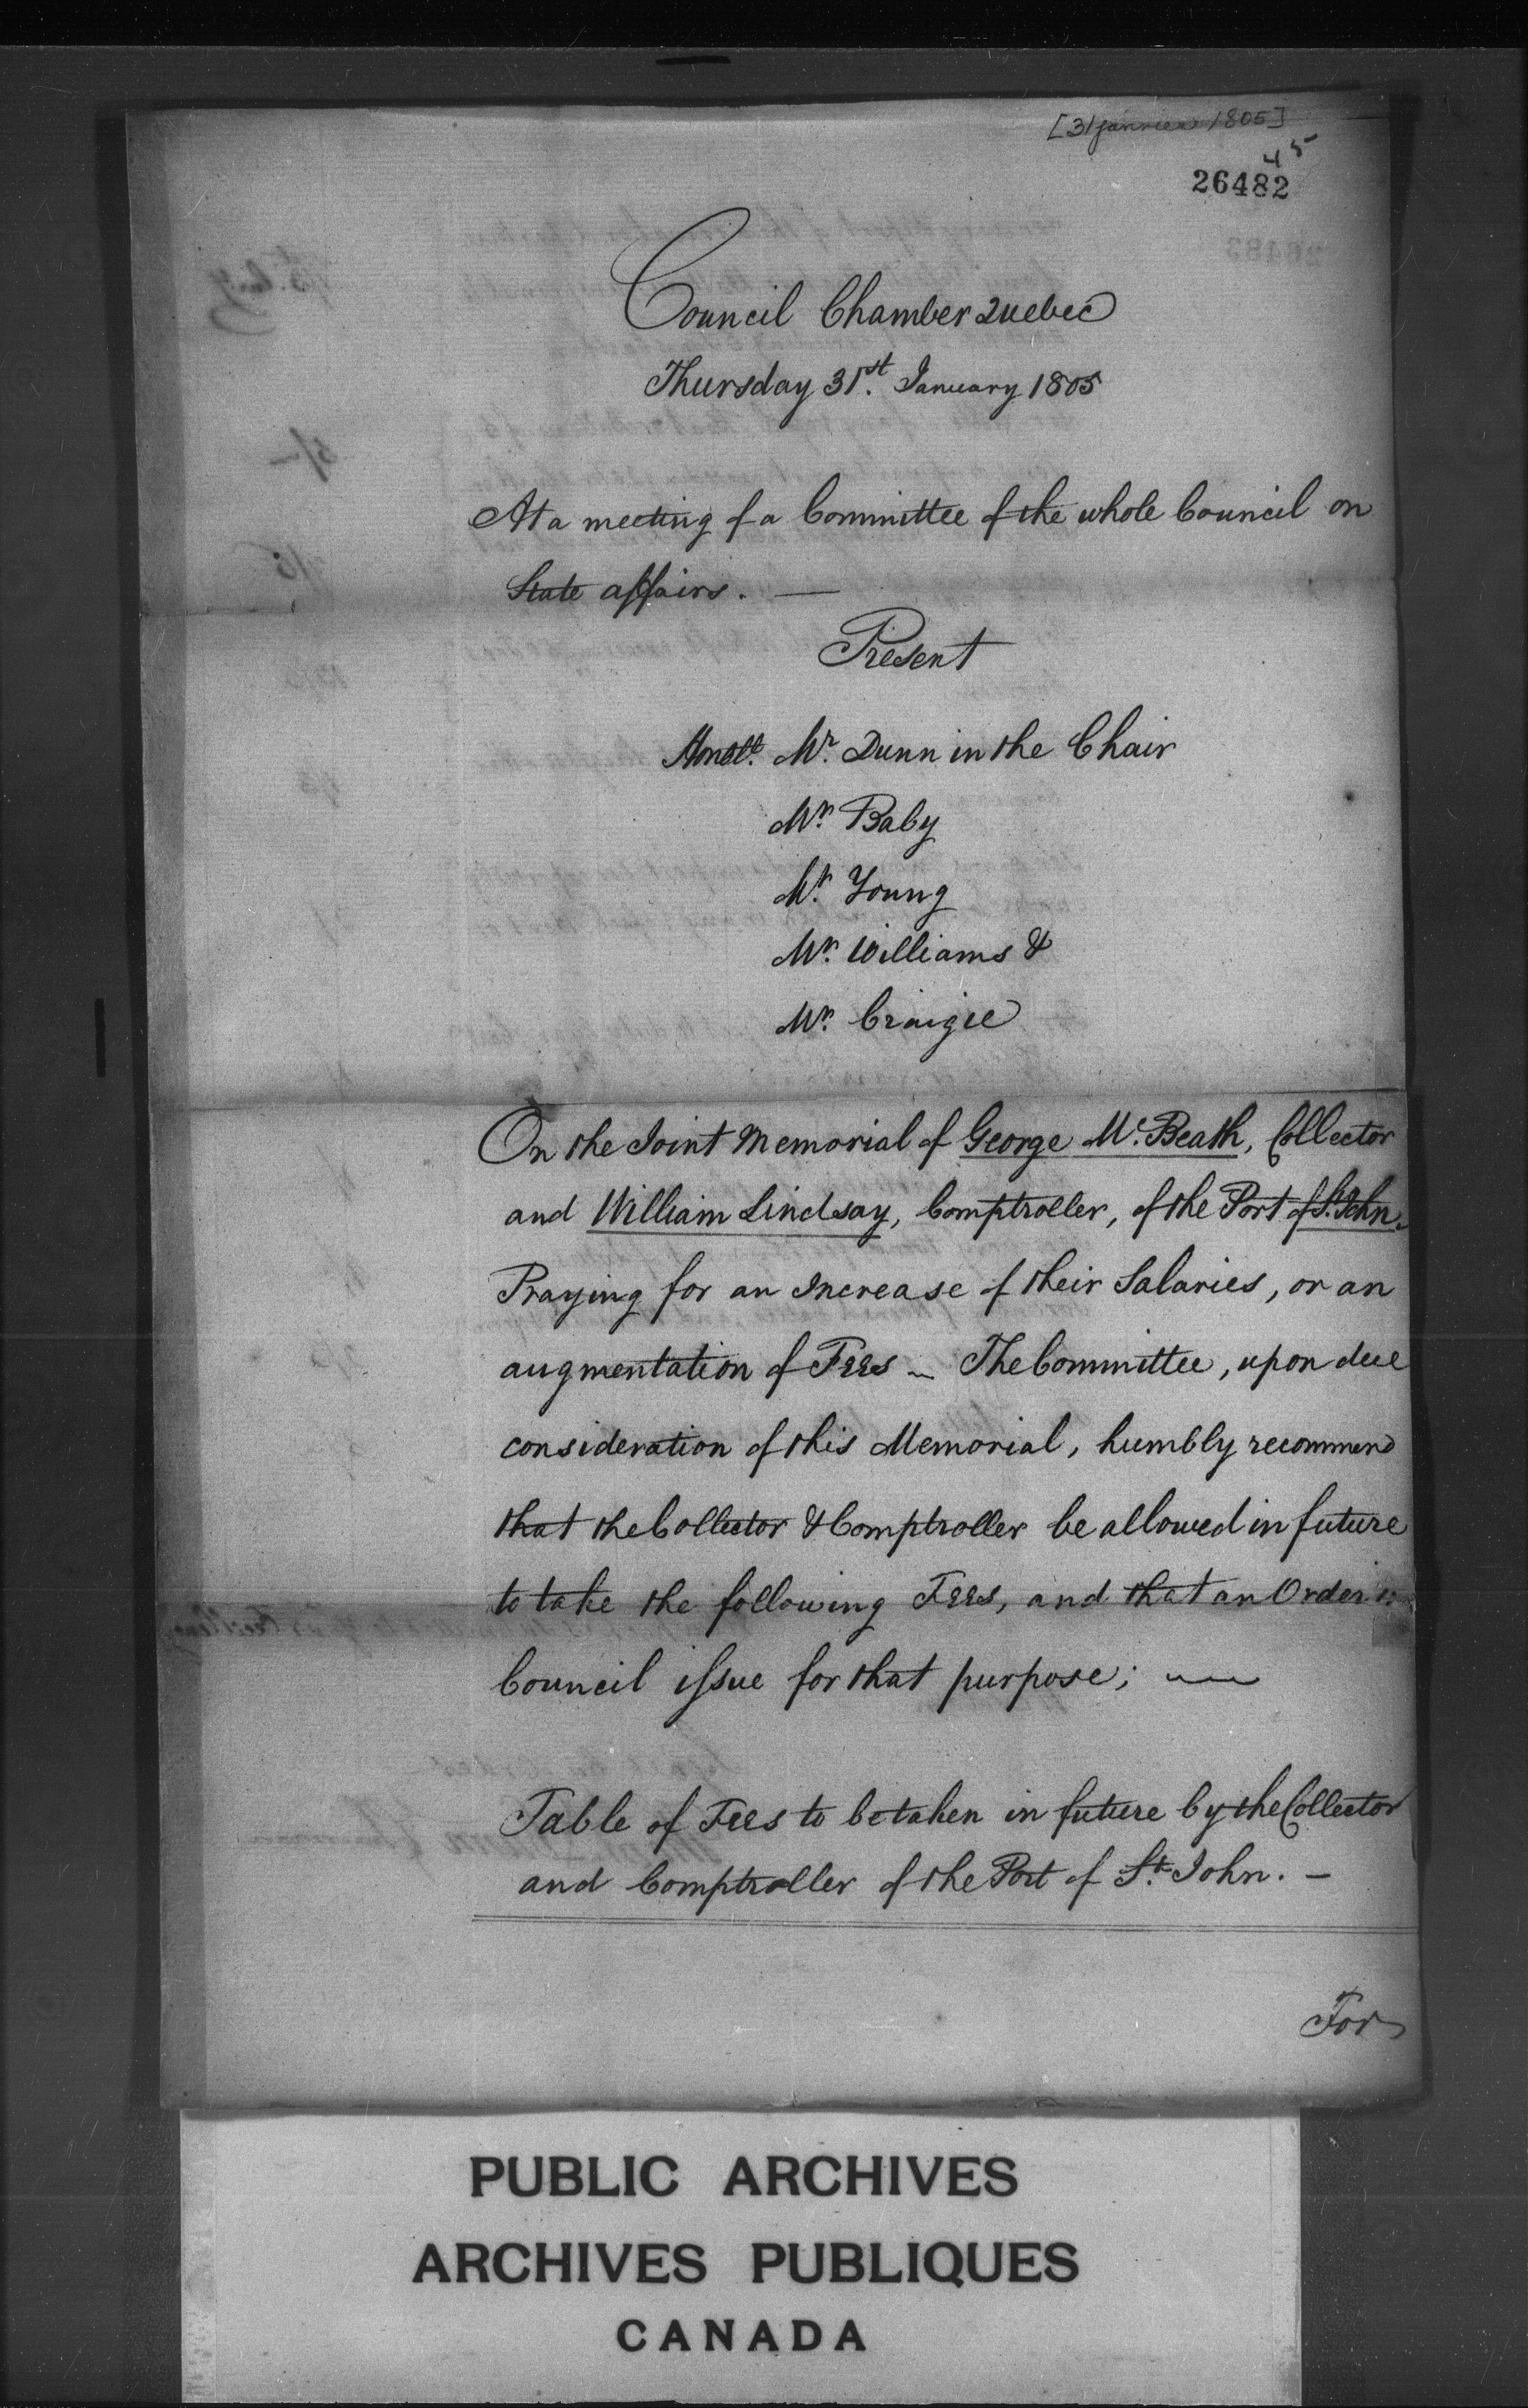 [31 janvier 1805]
45
26482
Council Chamber Quebec
Thursday 31st. January 1805
At a meeting of a Committee of the whole Council on
State affairs. —
Present
Honble. Mr. Dunn in the Chair
Mr. Baby
Mr. Young
Mr. Williams &
Mr. Craigie
On the Joint Memorial of George Mc. Beath, Collector
and William Lindsay, Comptroller, of the Port of St. John.
Praying for an Increase of their Salaries, or an
augmentation of Fees – The Committee, upon due
consideration of this Memorial, humbly recommend
that the Collector & Comptroller be allowed in future
to take the following Fees, and that an Order in
Council issue for that purpose; —
Table of Fees to be taken in future by the Collector
and Comptroller of the Port of St. John. –
For
PUBLIC ARCHIVES
ARCHIVES PUBLIQUES
CANADA